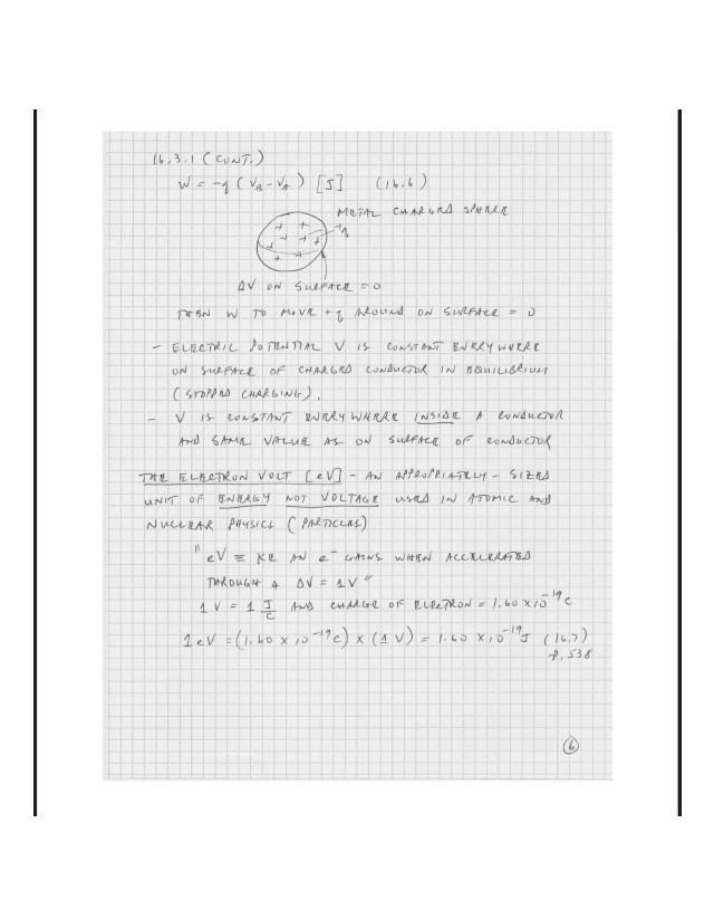 16.3.1 (CONT.)
W = -q (V_B - V_A) [J] (16.6)
METAL CHARGED SPHERE
+ + + + + + + + +q
ΔV ON SURFACE = 0
THEN W TO MOVE +q AROUND ON SURFACE = 0
- ELECTRIC POTENTIAL V IS CONSTANT EVERYWHERE
ON SURFACE OF CHARGED CONDUCTOR IN EQUILIBRIUM
(STOPPED CHARGING).
- V IS CONSTANT EVERYWHERE INSIDE A CONDUCTOR
AND SAME VALUE AS ON SURFACE OF CONDUCTOR
THE ELECTRON VOLT [eV] - AN APPROPRIATELY-SIZED
UNIT OF ENERGY NOT VOLTAGE USED IN ATOMIC AND
NUCLEAR PHYSICS (PARTICLES)
"eV ≡ KE AN e⁻ GAINS WHEN ACCELERATED
THROUGH A ΔV = 1V"
1 V = 1 J/C AND CHARGE OF ELECTRON = 1.60 x 10⁻¹⁹ C
1 eV = (1.60 x 10⁻¹⁹ C) x (1 V) = 1.60 x 10⁻¹⁹ J (16.7)
P. 538
6